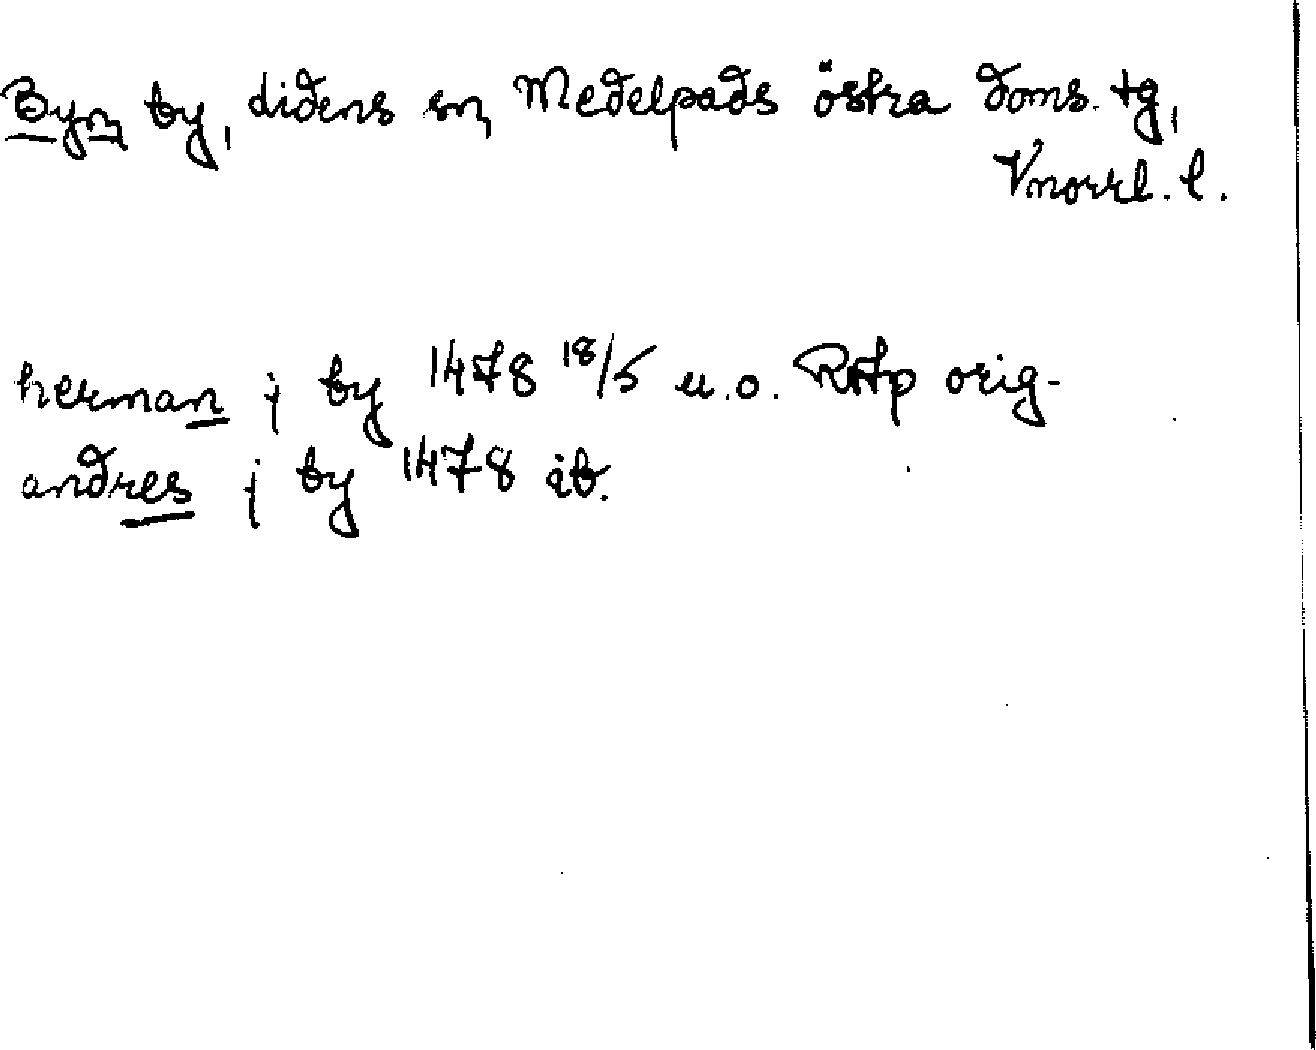 Byn by, Lidens sn, Medelpads östra doms. tg,
Vnorrl. l.
herman j by 1478 18/5 u.o. RAp orig.
andres j by 1478 ib.